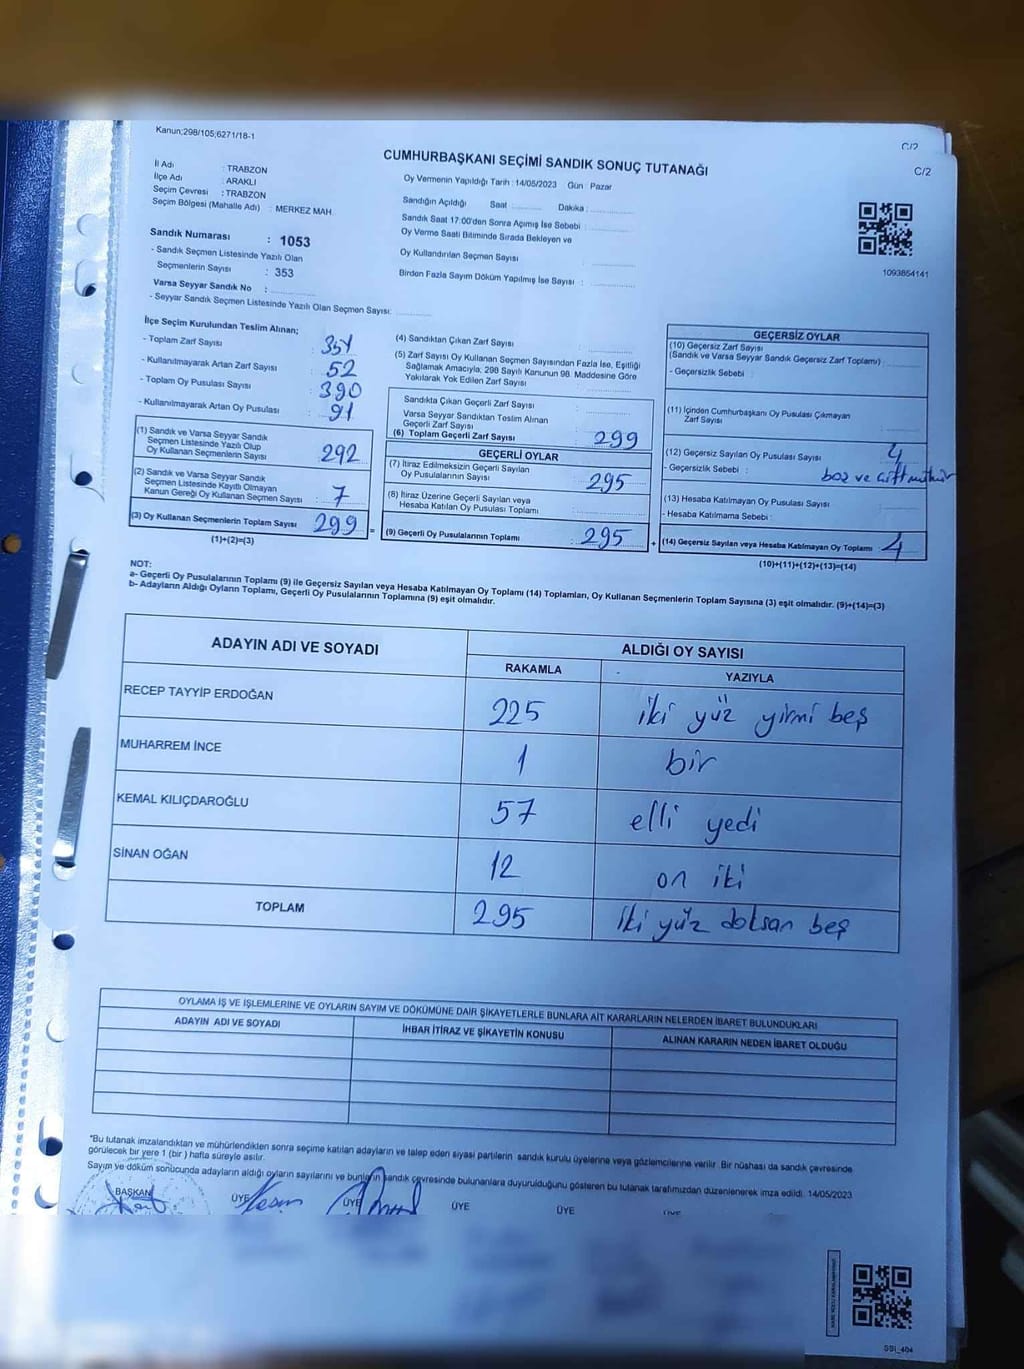 Kanun;298/105;6271/18-1
C/2
C/2
CUMHURBAŞKANI SEÇİMİ SANDIK SONUÇ TUTANAĞI
İl Adı : TRABZON
İlçe Adı : ARAKLI
Seçim Çevresi : TRABZON
Seçim Bölgesi (Mahalle Adı) : MERKEZ MAH.
Oy Vermenin Yapıldığı Tarih : 14/05/2023 Gün : Pazar
Sandığın Açıldığı Saat Dakika :
Sandık Saat 17:00'den Sonra Açımış İse Sebebi :
Oy Verme Saati Bitiminde Sırada Bekleyen ve
Oy Kullandırılan Seçmen Sayısı :
Birden Fazla Sayım Döküm Yapılmış İse Sayısı :
1093854141
Sandık Numarası : 1053
- Sandık Seçmen Listesinde Yazılı Olan
Seçmenlerin Sayısı : 353
Varsa Seyyar Sandık No :
- Seyyar Sandık Seçmen Listesinde Yazılı Olan Seçmen Sayısı:
İlçe Seçim Kurulundan Teslim Alınan;
- Toplam Zarf Sayısı : 351
- Kullanılmayarak Artan Zarf Sayısı : 52
- Toplam Oy Pusulası Sayısı : 390
- Kullanılmayarak Artan Oy Pusulası : 91
(1) Sandık ve Varsa Seyyar Sandık
Seçmen Listesinde Yazılı Olup
Oy Kullanan Seçmenlerin Sayısı : 292
(2) Sandık ve Varsa Seyyar Sandık
Seçmen Listesinde Kayıtlı Olmayan
Kanun Gereği Oy Kullanan Seçmen Sayısı : 7
(3) Oy Kullanan Seçmenlerin Toplam Sayısı : 299 =
(1)+(2)=(3)
(4) Sandıktan Çıkan Zarf Sayısı :
(5) Zarf Sayısı Oy Kullanan Seçmen Sayısından Fazla İse, Eşitliği
Sağlamak Amacıyla, 298 Sayılı Kanunun 98. Maddesine Göre
Yakılarak Yok Edilen Zarf Sayısı :
Sandıkta Çıkan Geçerli Zarf Sayısı :
Varsa Seyyar Sandıktan Teslim Alınan
Geçerli Zarf Sayısı :
(6) Toplam Geçerli Zarf Sayısı : 299
GEÇERLİ OYLAR
(7) İtiraz Edilmeksizin Geçerli Sayılan
Oy Pusulalarının Sayısı : 295
(8) İtiraz Üzerine Geçerli Sayılan veya
Hesaba Katılan Oy Pusulası Toplamı :
(9) Geçerli Oy Pusulalarının Toplamı : 295 +
GEÇERSİZ OYLAR
(10) Geçersiz Zarf Sayısı
(Sandık ve Varsa Seyyar Sandık Geçersiz Zarf Toplamı) :
- Geçersizlik Sebebi :
(11) İçinden Cumhurbaşkanı Oy Pusulası Çıkmayan
Zarf Sayısı :
(12) Geçersiz Sayılan Oy Pusulası Sayısı : 4
- Geçersizlik Sebebi : boz ve çift mühür
(13) Hesaba Katılmayan Oy Pusulası Sayısı :
- Hesaba Katılmama Sebebi :
(14) Geçersiz Sayılan veya Hesaba Katılmayan Oy Toplamı : 4
(10)+(11)+(12)+(13)=(14)
NOT:
a- Geçerli Oy Pusulalarının Toplamı (9) ile Geçersiz Sayılan veya Hesaba Katılmayan Oy Toplamı (14) Toplamları, Oy Kullanan Seçmenlerin Toplam Sayısına (3) eşit olmalıdır. (9)+(14)=(3)
b- Adayların Aldığı Oyların Toplamı, Geçerli Oy Pusulalarının Toplamına (9) eşit olmalıdır.
ADAYIN ADI VE SOYADI
ALDIĞI OY SAYISI
RAKAMLA YAZIYLA
RECEP TAYYİP ERDOĞAN 225 iki yüz yirmi beş
MUHARREM İNCE 1 bir
KEMAL KILIÇDAROĞLU 57 elli yedi
SİNAN OĞAN 12 on iki
TOPLAM 295 iki yüz doksan beş
OYLAMA İŞ VE İŞLEMLERİNE VE OYLARIN SAYIM VE DÖKÜMÜNE DAİR ŞİKAYETLERLE BUNLARA AİT KARARLARIN NELERDEN İBARET BULUNDUKLARI
ADAYIN ADI VE SOYADI İHBAR İTİRAZ VE ŞİKAYETİN KONUSU ALINAN KARARIN NEDEN İBARET OLDUĞU
*Bu tutanak imzalandıktan ve mühürlendikten sonra seçime katılan adayların ve talep eden siyasi partilerin sandık kurulu üyelerine veya gözlemcilerine verilir. Bir nüshası da sandık çevresinde
görülecek bir yere 1 (bir) hafta süreyle asılır.
Sayım ve döküm sonucunda adayların aldığı oyların sayılarını ve bunların sandık çevresinde bulunanlara duyurulduğunu gösteren bu tutanak tarafımızdan düzenlenerek imza edildi. 14/05/2023
BAŞKAN ÜYE ÜYE ÜYE ÜYE ÜYE
SSİ_404